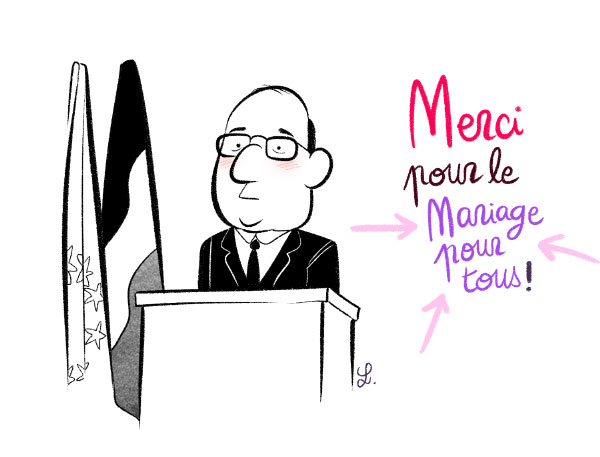 Merci
pour le
Mariage
pour
tous!
L.